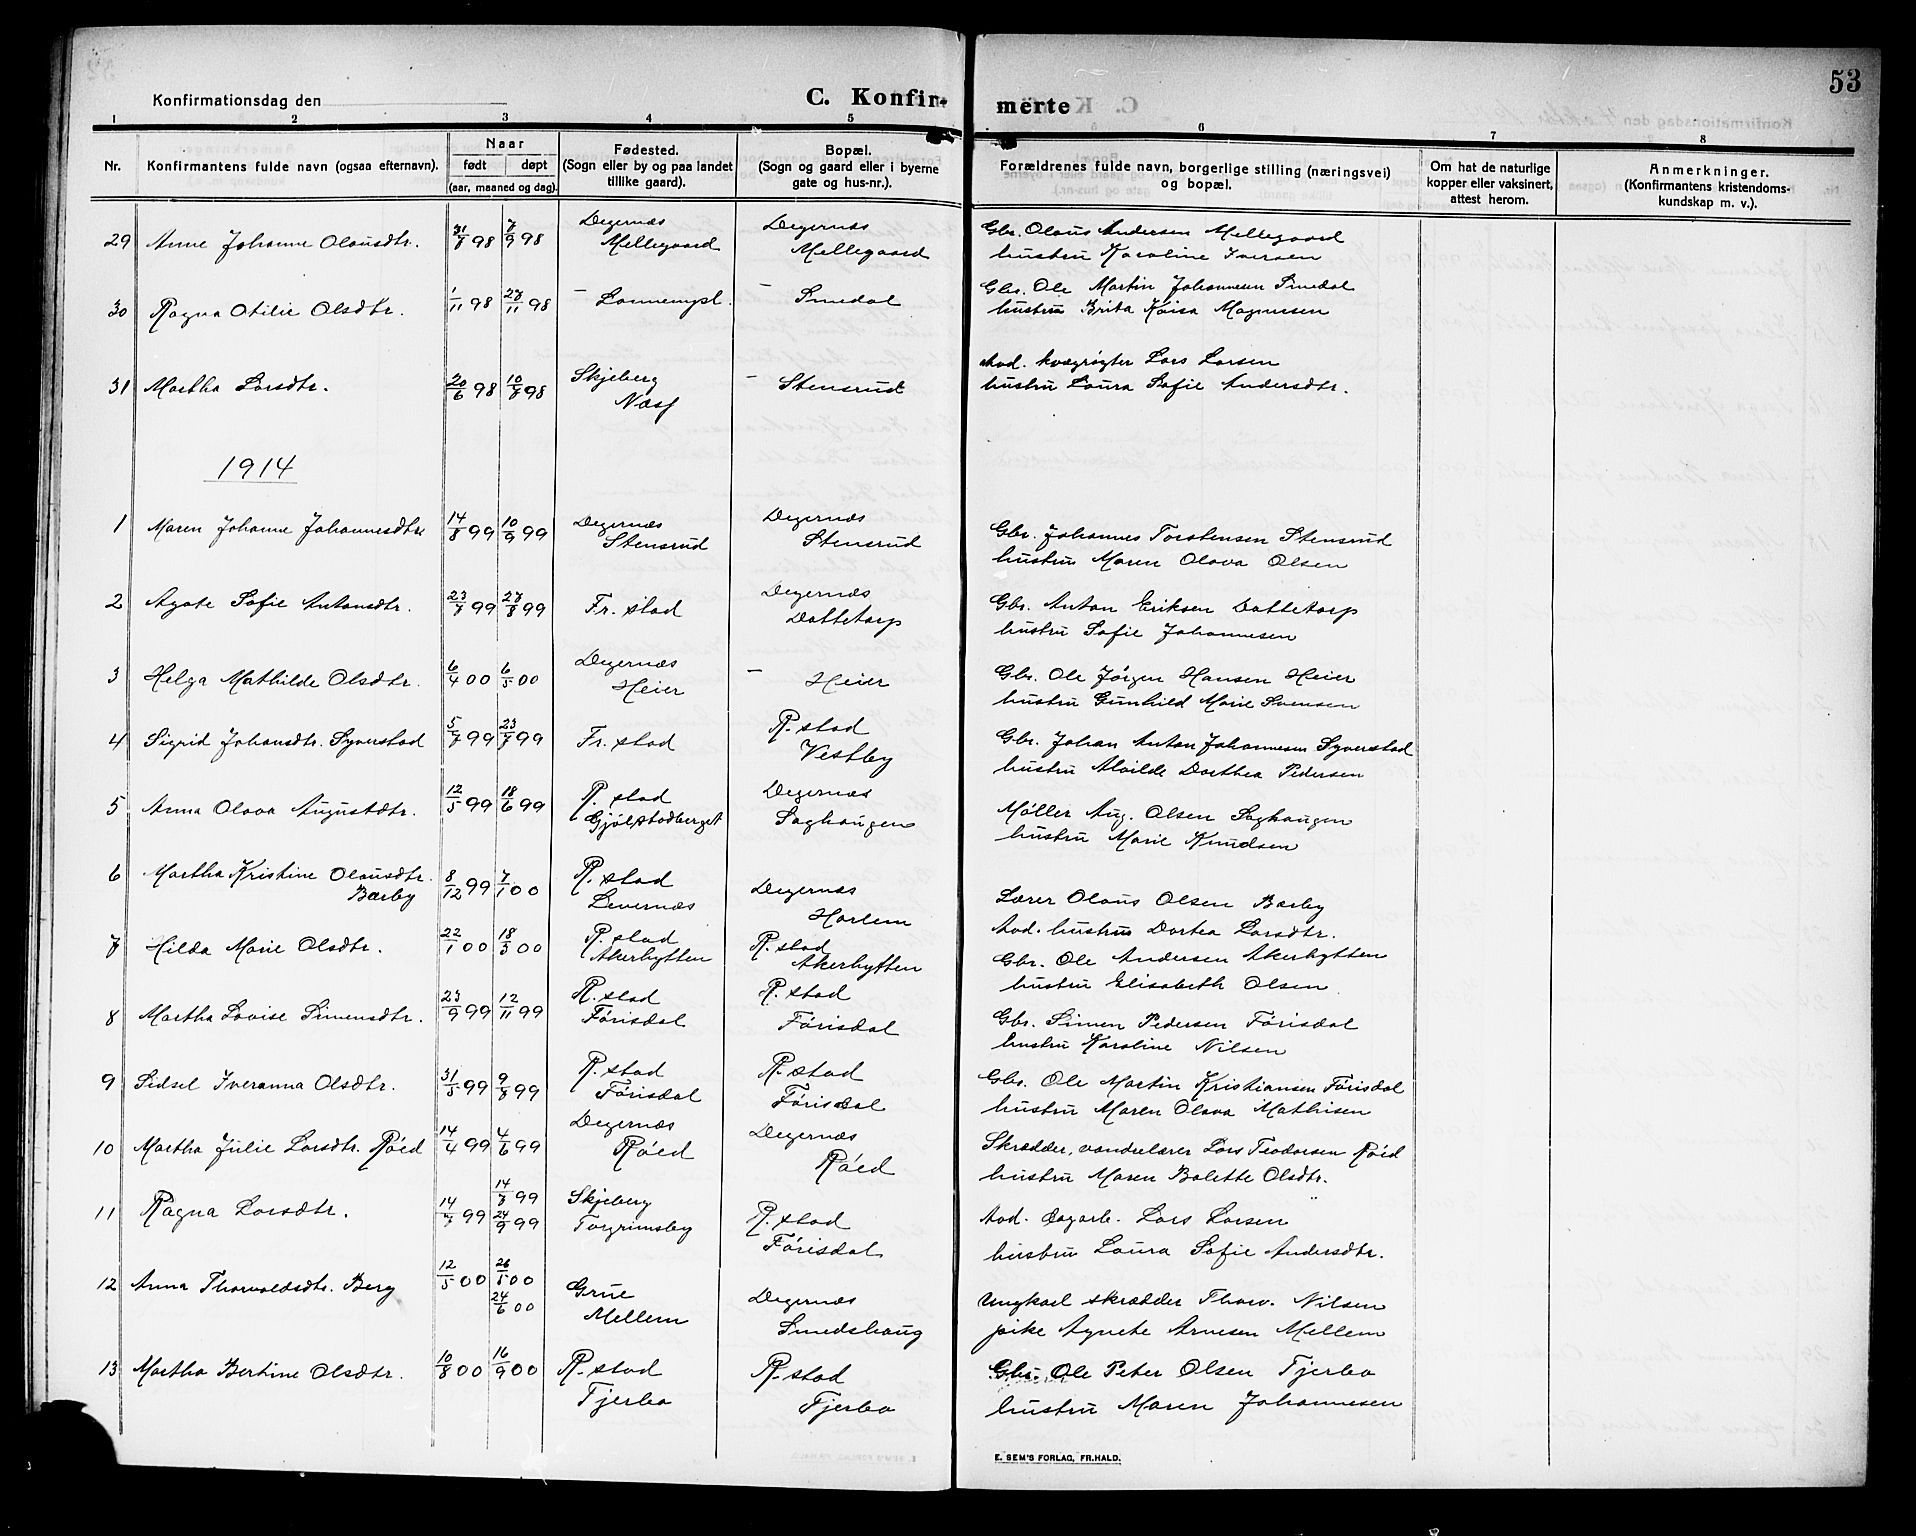 53
Konfirmationsdag den
C. Konfir-
mërte
1 2 3 4 5 6 7 8
Nr.
Konfirmantens fulde navn (ogsaa efternavn).
Naar
født døpt
(aar, maaned og dag).
Fødested.
(Sogn eller by og paa landet
tillike gaard).
Bopæl.
(Sogn og gaard eller i byerne
gate og hus-nr.).
Forældrenes fulde navn, borgerlige stilling (næringsvei)
og bopæl.
Om hat de naturlige
kopper eller vaksinert,
attest herom.
Anmerkninger.
(Konfirmantens kristendoms-
kundskap m. v.).
29 Anne Johanne Olausdtr. 31/8 98 7/9 98 Degernæs Degernæs Gbr. Olaus Andersen Mellegaard
Mellegaard Mellegaard hustru Karoline Iversen
30 Ragna Otilie Olsdtr. 1/11 98 27/11 98 – – Smedal Gbr. Ole Martin Johannesen Smedal
hustru Brita Kaisa Magnussen
31 Martha Larsdtr. 20/6 98 10/8 98 Skjeberg – Stensrud Aad. kvægrøgter Lars Larsen
Næs hustru Laura Sofie Andersdtr.
1914
1 Maren Johanne Johannesdtr 14/8 99 10/9 99 Degernæs Degernæs Gbr. Johannes Torstensen Stensrud
Stensrud Stensrud hustru Maren Olava Olsen
2 Agate Sofie Antonsdtr. 23/7 99 27/8 99 Fr. stad Degernæs Gbr. Anton Eriksen Dattetorp
Dattetorp hustru Sofie Johannesen
3 Helga Mathilde Olsdtr. 6/4 00 6/5 00 Degernæs – Heier Gbr. Ole Jørgen Hansen Heier
Heier hustru Gunhild Marie Svensen
4 Sigrid Johansdtr. Syverstad 5/7 99 23/7 99 Fr. stad R. stad Gbr. Johan Anton Johannesen Syverstad
Vestby hustru Alvilde Dorthea Pedersen
5 Anna Olava Augustdtr. 12/5 99 18/6 99 R. stad Degernæs Møller Aug. Olsen Saghaugen
Gjølstadberget Saghaugen hustru Marie Knudsen
6 Martha Kristine Olausdtr. 8/12 99 7/1 00 R. stad Degernæs Lærer Olaus Olsen Bærby
Bærby Levernæs Harlem Aad. hustru Dortea Larsdtr.
7 Hilda Marie Olsdtr. 22/1 00 18/3 00 R. stad R. stad Gbr. Ole Andersen Akerhytten
Akerhytten Akerhytten hustru Elisabeth Olsen
8 Martha Lovise Simensdtr. 23/9 99 12/11 99 R. stad R. stad Gbr. Simen Pedersen Førisdal
Førisdal Førisdal hustru Karoline Nilsen
9 Sidsel Iveranna Olsdtr. 31/5 99 9/8 99 R. stad R. stad Gbr. Ole Martin Kristiansen Førisdal
Førisdal Førisdal hustru Maren Olava Mathisen
10 Martha Julie Larsdtr. Røed 14/4 99 4/6 99 Degernæs Degernæs Skrædder, vandrelærer Lars Teodorsen Røed
Røed Røed hustru Maren Bolette Olsdtr.
11 Ragna Larsdtr. 14/7 99 14/7 99 24/9 99 Skjeberg R. stad Aad. Dagarb. Lars Larsen
Torgrimsby Førisdal hustru Laura Sofie Andersdtr.
12 Anna Thorvaldsdtr. Berg 12/5 00 26/5 00 24/6 00 Grue Degernæs Ungkarl skrædder Thorv. Nilsen
Mellem Smedshaug pike Agnete Arnesen Mellem
13 Martha Bertine Olsdtr. 10/8 00 16/9 00 R. stad R. stad Gbr. Ole Peter Olsen Tjerbo
Tjerbo Tjerbo hustru Maren Johannesen
E. SEM'S FORLAG, FR.HALD.